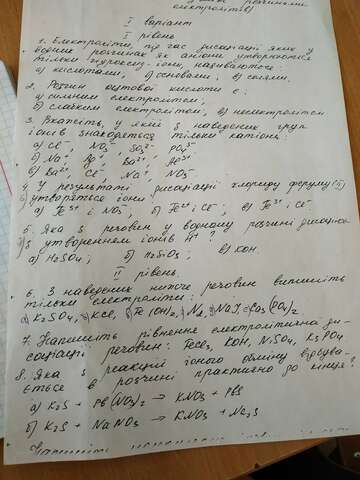 розчинами
електролітів)
І варіант
І рівень
1. Електроліти, під час дисоціації яких у
водних розчинах як аніони утворюються
тільки гідроксид-іони, називаються
а) кислотами; б) основами; в) солями.
2. Розчин оцтової кислоти є:
а) сильним електролітом;
б) слабким електролітом; в) неелектролітом
3. Вкажіть, у якій з наведених груп
іонів знаходяться тільки катіони:
а) Cl⁻, NO₃⁻, SO₃²⁻, PO₄³⁻
б) Na⁺, Ag⁺, Ba²⁺, Al³⁺
в) Ba²⁺, Cl⁻, Na⁺, NO₃⁻
4. У результаті дисоціації хлориду феруму (ІІ)
утворяться іони
а) Fe³⁺ і NO₃⁻; б) Fe²⁺ і Cl⁻; в) Fe³⁺ і Cl⁻
5. Яка з речовин у водному розчині дисоціює
з утворенням іонів H⁺?
а) H₂SO₄; б) H₂SiO₃; в) KOH.
ІІ рівень.
6. З наведених нижче речовин випишіть
тільки електроліти:
а) K₂SO₄, KCl, Fe(OH)₂, N₂, NaI, Ca₃(PO₄)₂
7. Напишіть рівняння електролітичної ди-
соціації речовин: FeCl₃, KOH, NiSO₄, K₃PO₄
8. Яка з реакцій іоного обміну відбува-
ється в розчині практично до кінця?
а) K₂S + Pb(NO₃)₂ → KNO₃ + PbS
б) K₂S + NaNO₃ → KNO₃ + Na₂S